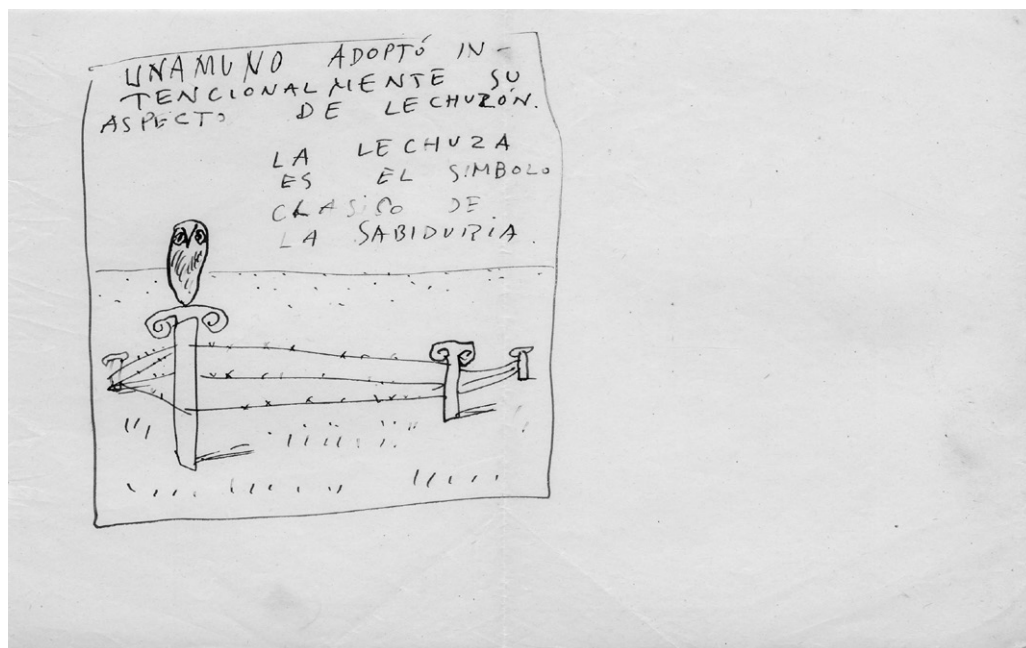 UNAMUNO ADOPTÓ IN-
TENCIONALMENTE SU
ASPECTO DE LECHUZÓN.
LA LECHUZA
ES EL SIMBOLO
CLASICO DE
LA SABIDURÍA.